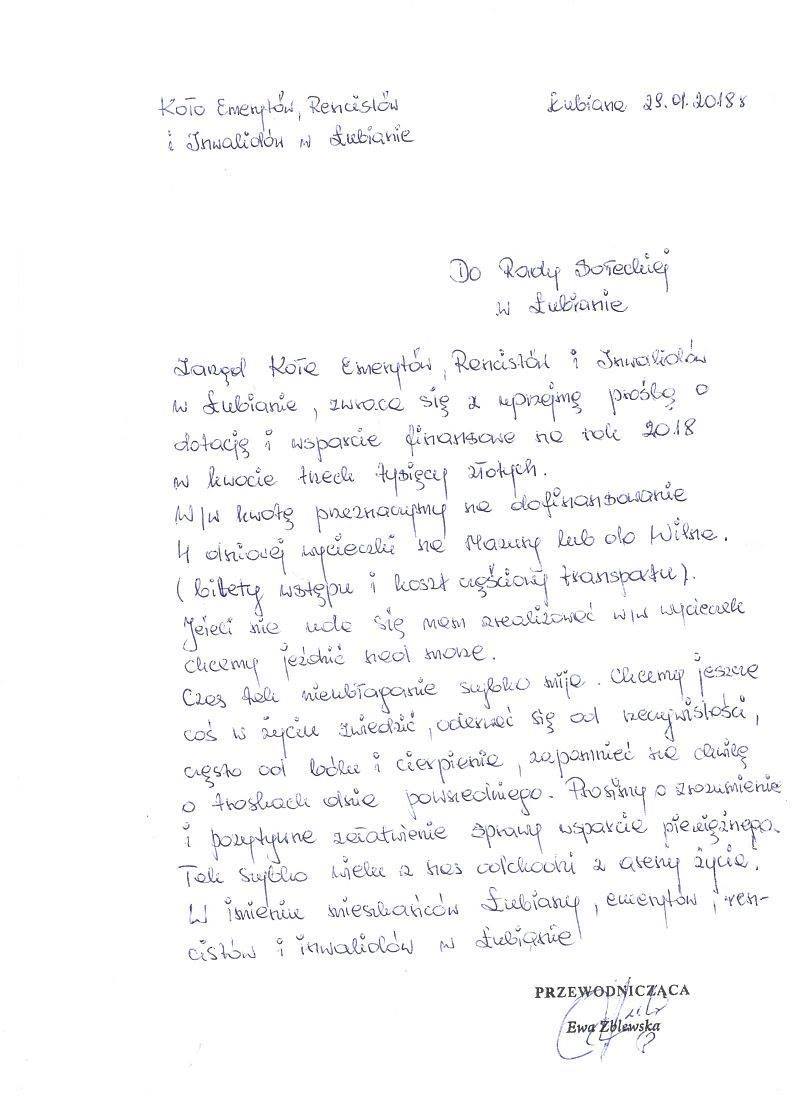 Koło Emerytów, Rencistów
i Inwalidów w Łubianie
Łubiana 29.01.2018 r
Do Rady Sołeckiej
w Łubianie
Zarząd Koła Emerytów, Rencistów i Inwalidów
w Łubianie, zwraca się z uprzejmą prośbą o
dotację i wsparcie finansowe na rok 2018
w kwocie trzech tysięcy złotych.
W/w kwotę przeznaczymy na dofinansowanie
4 dniowej wycieczki na Mazury lub do Wilna.
(bilety wstępu i koszt częściowy transportu).
Jeżeli nie uda się nam zrealizować w/w wycieczek
chcemy jeździć nad morze.
Czas tak nieubłaganie szybko mija. Chcemy jeszcze
coś w życiu zwiedzić, oderwać się od rzeczywistości,
często od bólu i cierpienia, zapomnieć na chwilę
o troskach dnia powszedniego. Prosimy o zrozumienie
i pozytywne załatwienie sprawy wsparcia pieniężnego.
Tak szybko wielu z nas odchodzi z areny życia.
W imieniu mieszkańców Łubiany, emerytów, ren-
cistów i inwalidów w Łubianie
PRZEWODNICZĄCA
Ewa Zblewska